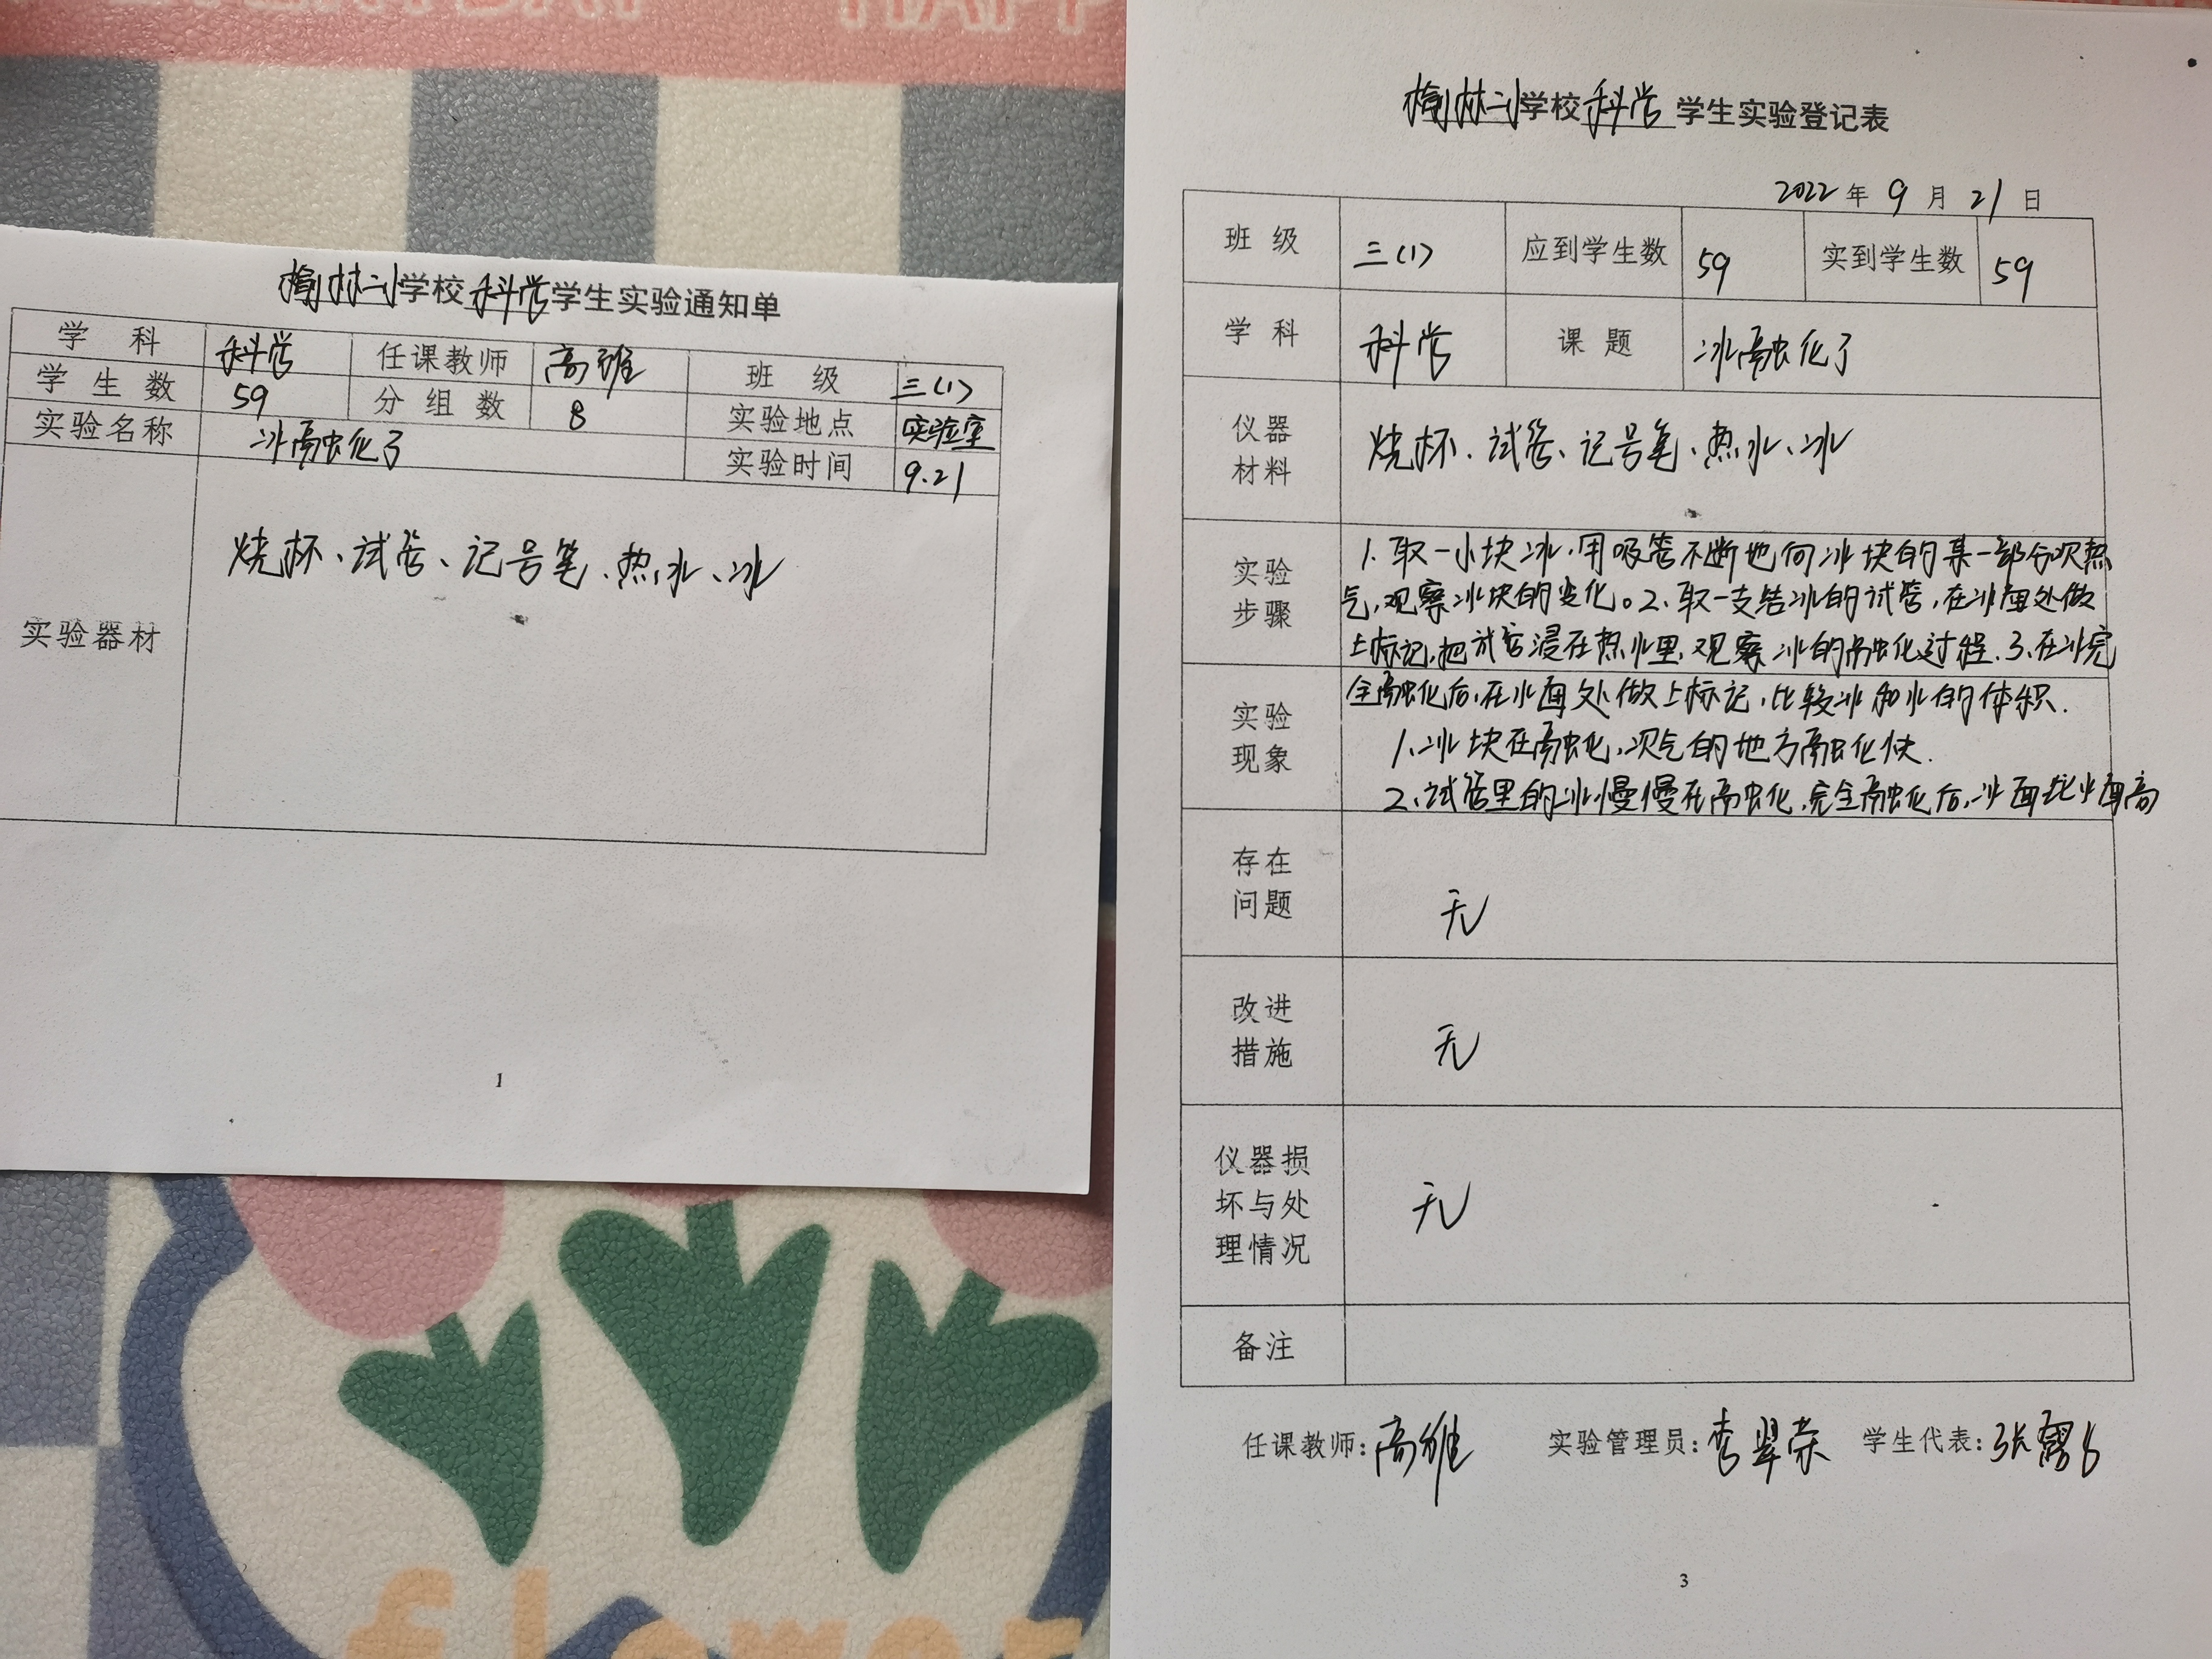 HAPP
榆林二小学校科学学生实验通知单
学 科 科学 任课教师 高雅 班 级 三(1)
学 生 数 59 分 组 数 8 实验地点 实验室
实验名称 冰融化了 实验时间 9.21
实验器材 烧杯、试管、记号笔、热水、冰
1
flower
榆林二小学校科学学生实验登记表
2022年9月21日
班 级 三(1) 应到学生数 59 实到学生数 59
学 科 科学 课 题 冰融化了
仪器
材料
烧杯、试管、记号笔、热水、冰
实验
步骤
1.取一小块冰,用吸管不断地向冰块的某一部分吹热
气,观察冰块的变化。2、取一支结冰的试管,在冰面处做
上标记,把试管浸在热水里,观察冰的融化过程.3、在冰完
全融化后,在水面处做上标记,比较冰和水的体积.
实验
现象
1、冰块在融化,吹气的地方融化快.
2、试管里的冰慢慢在融化,完全融化后,冰面比水面高
存在
问题
无
改进
措施
无
仪器损
坏与处
理情况
无
备注
任课教师:高雅 实验管理员:李翠荣 学生代表:张
3